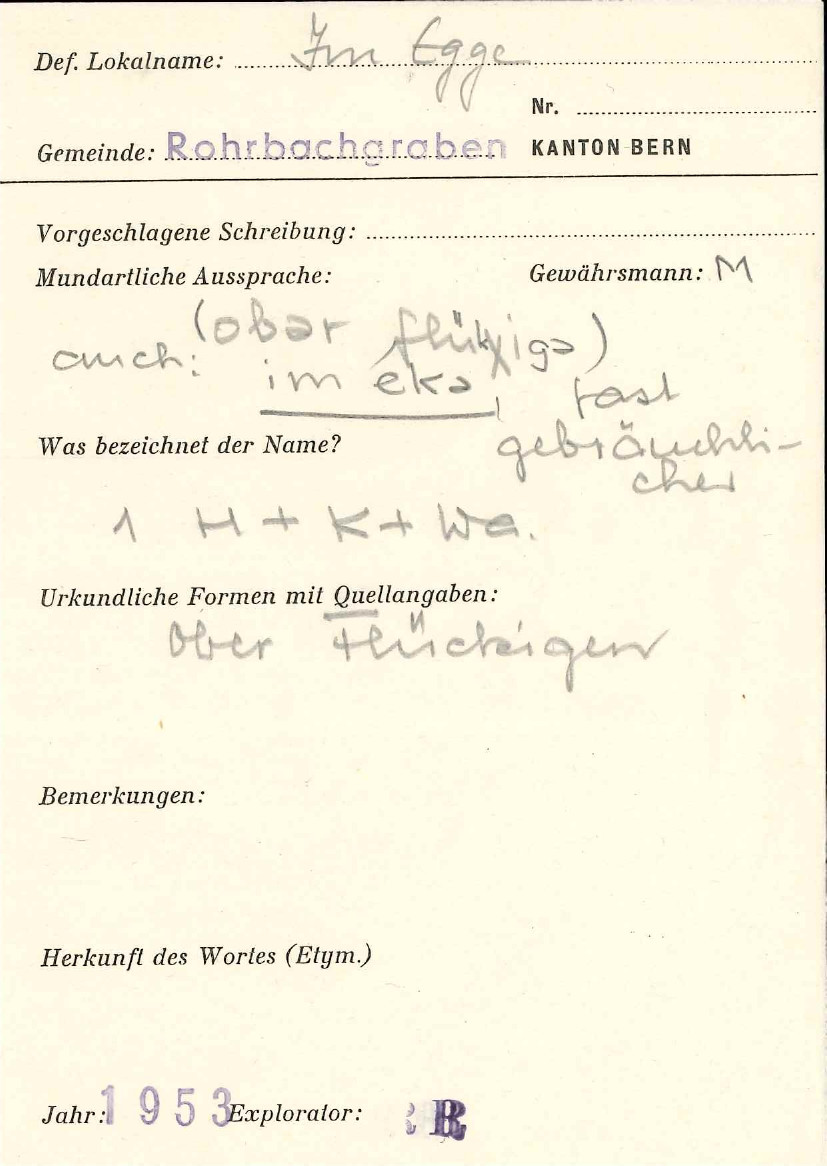 Def. Lokalname: Im Egge
Nr.
Gemeinde: Rohrbachgraben KANTON BERN
Vorgeschlagene Schreibung:
Mundartliche Aussprache: Gewährsmann: M
(obər flükxigə)
auch: im ekə, fast
gebräuchli-
cher
Was bezeichnet der Name?
1 H + K + We.
Urkundliche Formen mit Quellangaben:
Ober Flückigen
Bemerkungen:
Herkunft des Wortes (Etym.)
Jahr: 1953 Explorator: R